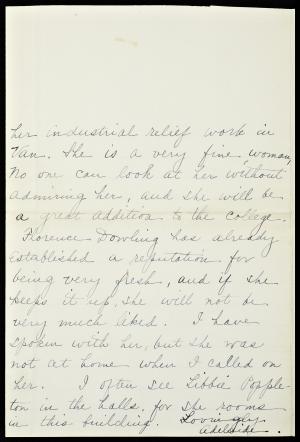 her industrial relief work in
Van. She is a very fine woman,
No one can look at her without
admiring her, and she will be
a great addition to the college.
Florence Dowling has already
established a reputation for
being very fresh, and if she
keeps it up, she will not be
very much liked. I have
spoken with her, but she was
not at home when I called on
her. I often see Libbie Popple-
ton in the halls, for she rooms
in this building. Lovingly
Adelaide.